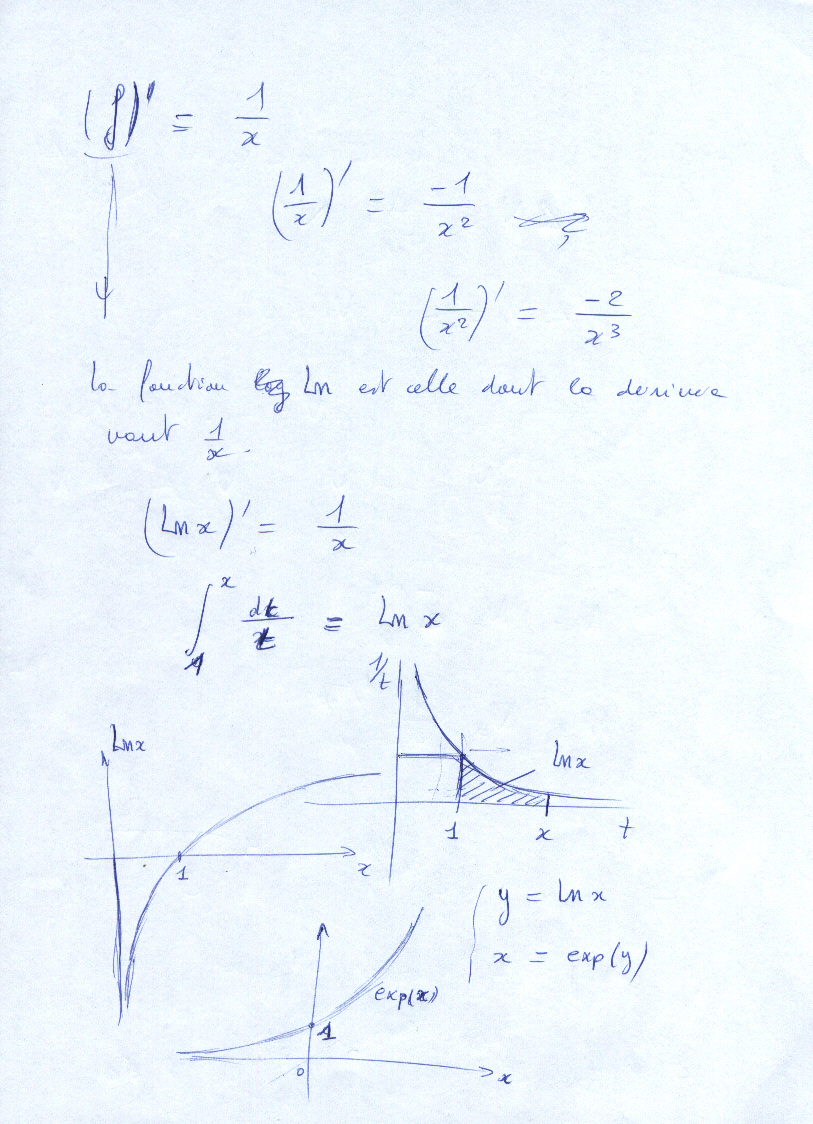 (f)' = 1/x
(1/x)' = -1/x²
(1/x²)' = -2/x³
la fonction Ln est celle dont la derivee
vaut 1/x.
(Ln x)' = 1/x
∫₁ˣ dt/t = Ln x
1/t
Ln x
Ln x
1 x t
1 x
y = Ln x
x = exp(y)
exp(x)
1
0 x